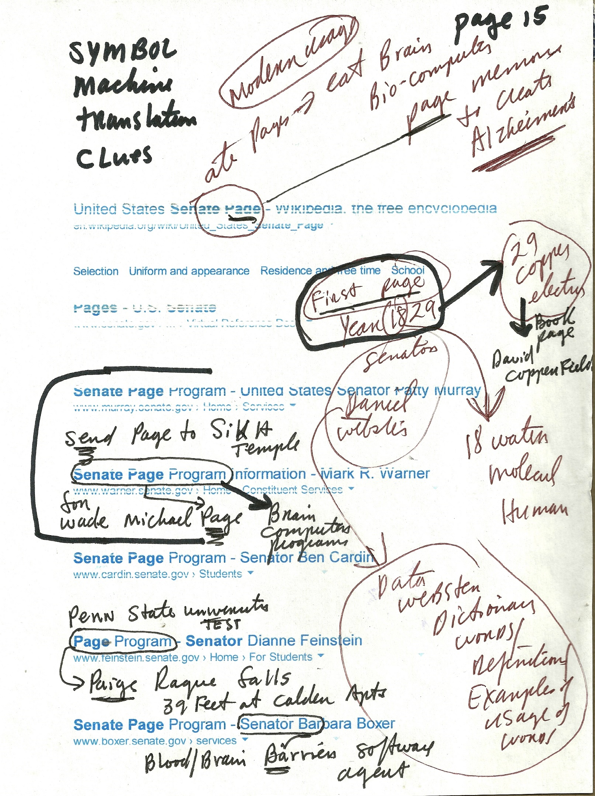 page 15
SYMBOL
Machine
translation
CLUES
Modern usage
ate pages → eat Brain
Bio-computer
page memories
to create
Alzheimer's
United States Senate Page - Wikipedia, the free encyclopedia
en.wikipedia.org/wiki/United_States_Senate_Page
Selection Uniform and appearance Residence and free time School
First page
Year 1829
29
copper
electrons
Book
page
David
Copperfield
Pages - U.S. Senate
Senators
Daniel
webster
18 water
molecule
Human
Senate Page Program - United States Senator Patty Murray
www.murray.senate.gov › Home › Services
Send Page to Sikh
Temple
Senate Page Program Information - Mark R. Warner
www.warner.senate.gov › Home › Constituent Services
for
wade Michael Page
Brain
computer
programs
Senate Page Program - Senator Ben Cardin
www.cardin.senate.gov › Students
Data
webster
Dictionary
words/
Definitions/
Examples of
usage of
words
Penn State universities
TEST
Page Program - Senator Dianne Feinstein
www.feinstein.senate.gov › Home › For Students
Paige Raque falls
39 Feet at Calder Apts
Senate Page Program - Senator Barbara Boxer
www.boxer.senate.gov › services
Blood/Brain Barriers software
agent